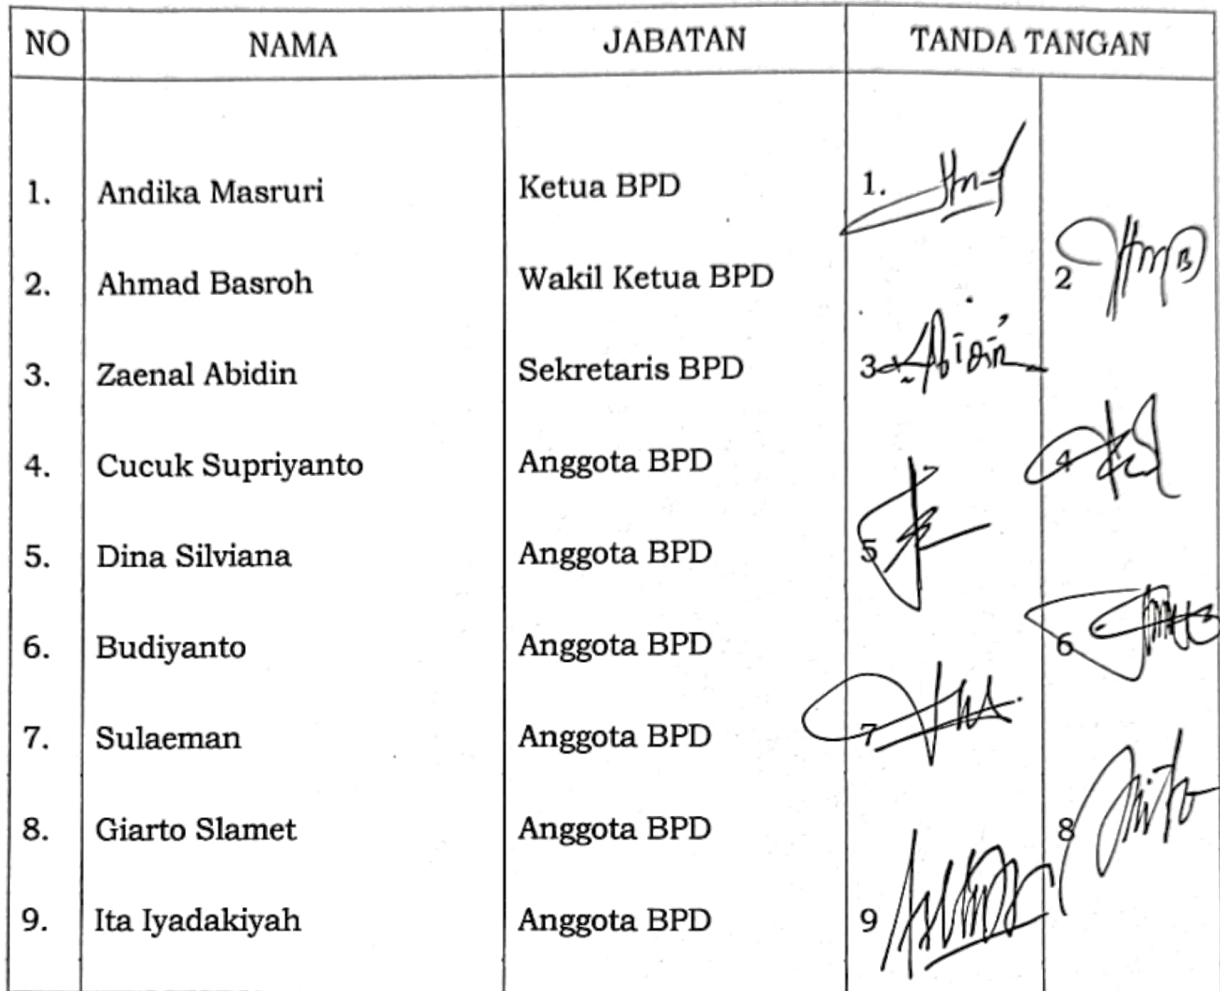 NO NAMA JABATAN TANDA TANGAN
1. Andika Masruri Ketua BPD 1.
2. Ahmad Basroh Wakil Ketua BPD 2
3. Zaenal Abidin Sekretaris BPD 3 Abidin
4. Cucuk Supriyanto Anggota BPD 4
5. Dina Silviana Anggota BPD 5
6. Budiyanto Anggota BPD 6
7. Sulaeman Anggota BPD 7
8. Giarto Slamet Anggota BPD 8
9. Ita Iyadakiyah Anggota BPD 9